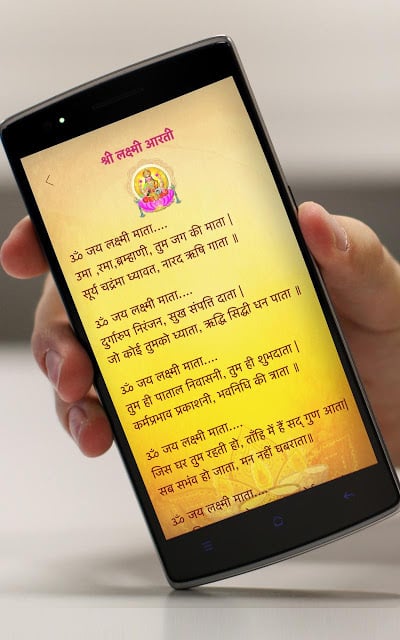 श्री लक्ष्मी आरती
ॐ जय लक्ष्मी माता....
उमा ,रमा,ब्रम्हाणी, तुम जग की माता |
सूर्य चद्रंमा ध्यावत, नारद ऋषि गाता ॥
ॐ जय लक्ष्मी माता....
दुर्गारुप निरंजन, सुख संपति दाता |
जो कोई तुमको ध्याता, ऋद्धि सिद्धी धन पाता ॥
ॐ जय लक्ष्मी माता....
तुम ही पाताल निवासनी, तुम ही शुभदाता |
कर्मप्रभाव प्रकाशनी, भवनिधि की त्राता ॥
ॐ जय लक्ष्मी माता....
जिस घर तुम रहती हो, ताँहि में हैं सद् गुण आता|
सब सभंव हो जाता, मन नहीं घबराता॥
ॐ जय लक्ष्मी माता....